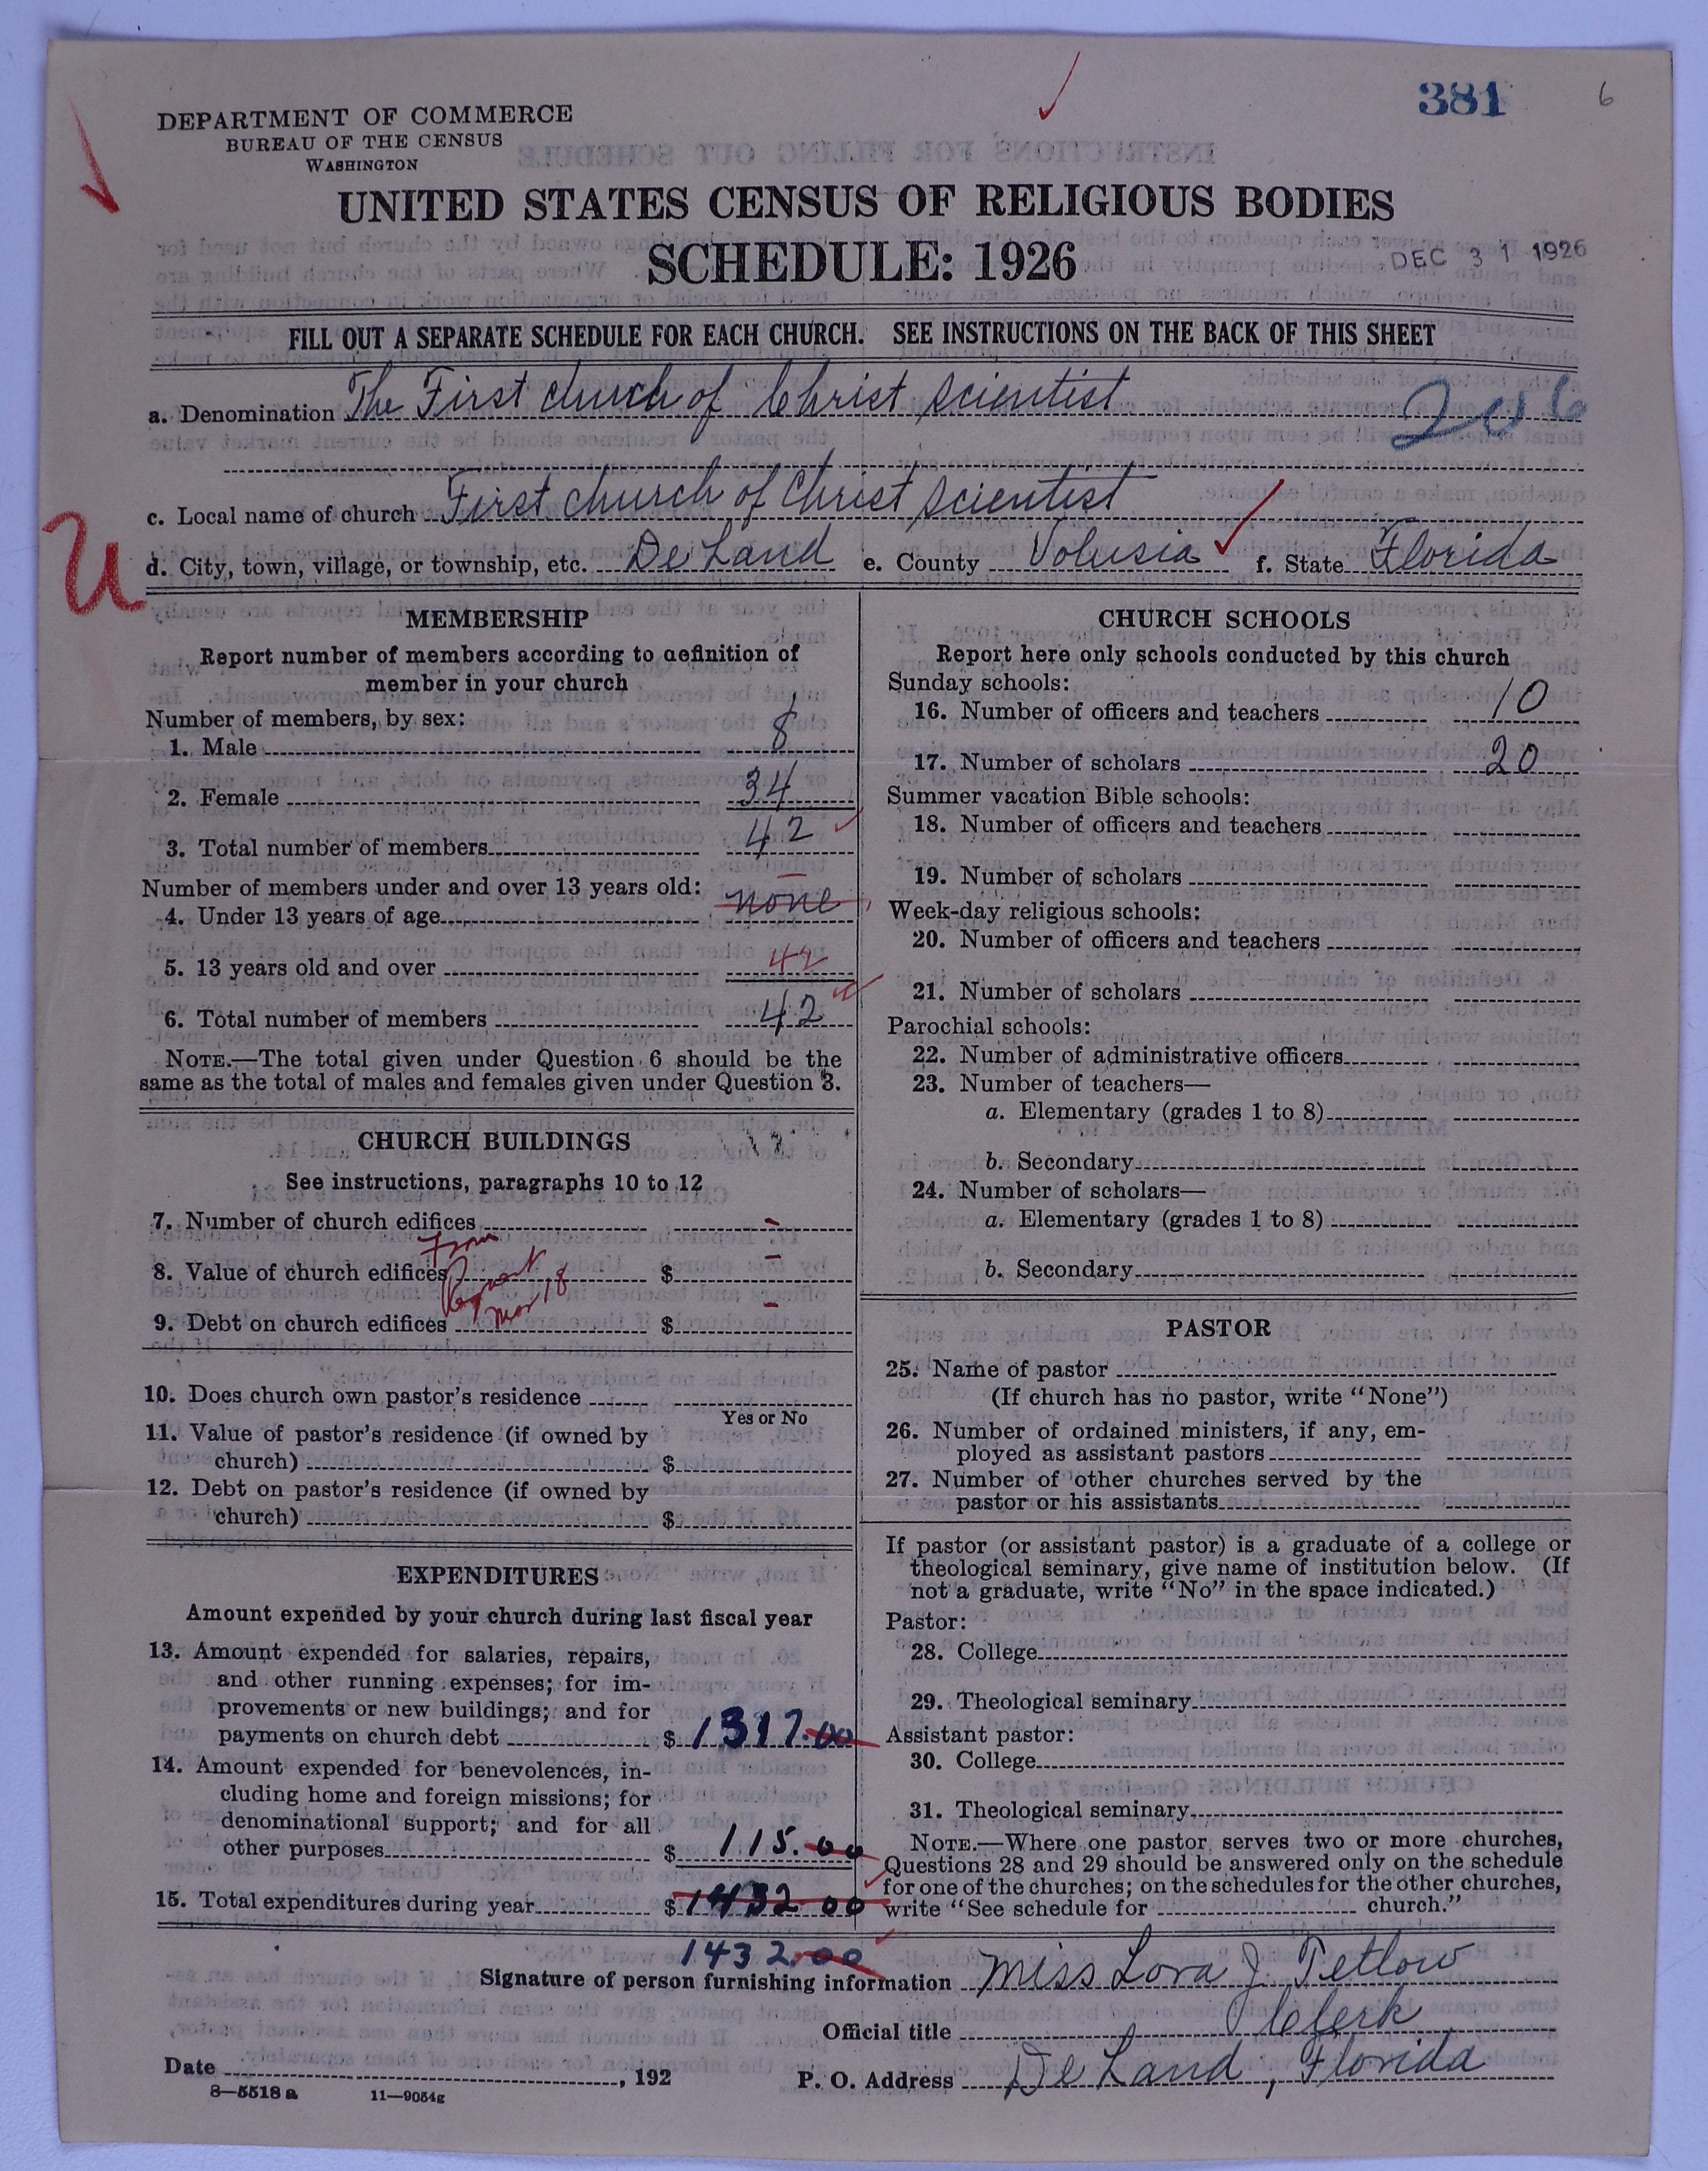 381
6
DEPARTMENT OF COMMERCE
BUREAU OF THE CENSUS
WASHINGTON
UNITED STATES CENSUS OF RELIGIOUS BODIES
SCHEDULE: 1926
DEC 31 1926
FILL OUT A SEPARATE SCHEDULE FOR EACH CHURCH. SEE INSTRUCTIONS ON THE BACK OF THIS SHEET
a. Denomination The First church of Christ Scientist
206
c. Local name of church First church of Christ Scientist
U
d. City, town, village, or township, etc. De Land e. County Volusia f. State Florida
MEMBERSHIP
Report number of members according to definition of
member in your church
Number of members, by sex:
1. Male 8
2. Female 34
3. Total number of members 42
Number of members under and over 13 years old:
4. Under 13 years of age none
5. 13 years old and over 42
6. Total number of members 42
NOTE.—The total given under Question 6 should be the
same as the total of males and females given under Question 3.
CHURCH BUILDINGS
See instructions, paragraphs 10 to 12
7. Number of church edifices -
From
8. Value of church edifices $ -
Mar 18
9. Debt on church edifices $ -
10. Does church own pastor's residence
Yes or No
11. Value of pastor's residence (if owned by
church) $
12. Debt on pastor's residence (if owned by
church) $
EXPENDITURES
Amount expended by your church during last fiscal year
13. Amount expended for salaries, repairs,
and other running expenses; for im-
provements or new buildings; and for
payments on church debt $ 1317.00
14. Amount expended for benevolences, in-
cluding home and foreign missions; for
denominational support; and for all
other purposes $ 115.00
15. Total expenditures during year $ 1432 00
1432.00
CHURCH SCHOOLS
Report here only schools conducted by this church
Sunday schools:
16. Number of officers and teachers 10
17. Number of scholars 20
Summer vacation Bible schools:
18. Number of officers and teachers
19. Number of scholars
Week-day religious schools:
20. Number of officers and teachers
21. Number of scholars
Parochial schools:
22. Number of administrative officers
23. Number of teachers—
a. Elementary (grades 1 to 8)
b. Secondary
24. Number of scholars—
a. Elementary (grades 1 to 8)
b. Secondary
PASTOR
25. Name of pastor
(If church has no pastor, write "None")
26. Number of ordained ministers, if any, em-
ployed as assistant pastors
27. Number of other churches served by the
pastor or his assistants
If pastor (or assistant pastor) is a graduate of a college or
theological seminary, give name of institution below. (If
not a graduate, write "No" in the space indicated.)
Pastor:
28. College
29. Theological seminary
Assistant pastor:
30. College
31. Theological seminary
NOTE.—Where one pastor serves two or more churches,
Questions 28 and 29 should be answered only on the schedule
for one of the churches; on the schedules for the other churches,
write "See schedule for church."
Signature of person furnishing information Miss Lora J. Tetlow
Official title Clerk
Date , 192 P. O. Address De Land, Florida
8—5518 a 11—9054g